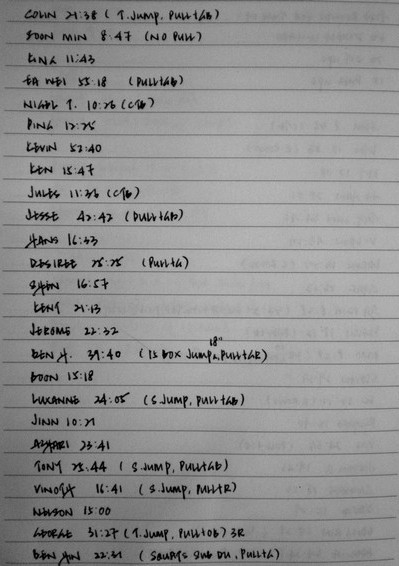 COLIN 21:38 (T.JUMP, PULLTAB)
SOON MIN 8:47 (NO PULL)
KING 11:43
EA WEI 55:18 (PULLTAB)
NIGEL T. 10:26 (CTB)
PING 12:25
KEVIN 52:40
KEN 15:47
JULES 11:36 (CTB)
JESSE 42:42 (PULLTAB)
HANS 16:33
DESIREE 25:25 (PULLTA)
SHEN 16:57
KENT 21:13
JEROME 22:32
BEN H. 39:40 (15 BOX JUMP 18", PULLTAR)
BOON 15:18
LUXANNE 24:05 (S.JUMP, PULLTAB)
JINN 10:21
AZHARI 23:41
TONY 25:44 (S.JUMP, PULLTAB)
VINOTH 16:41 (S.JUMP, PULLTR)
NELSON 15:00
GEORGE 31:27 (T.JUMP, PULLTOB) 3R
BEN YIN 22:31 (SQUATS SUB DU, PULLTA)